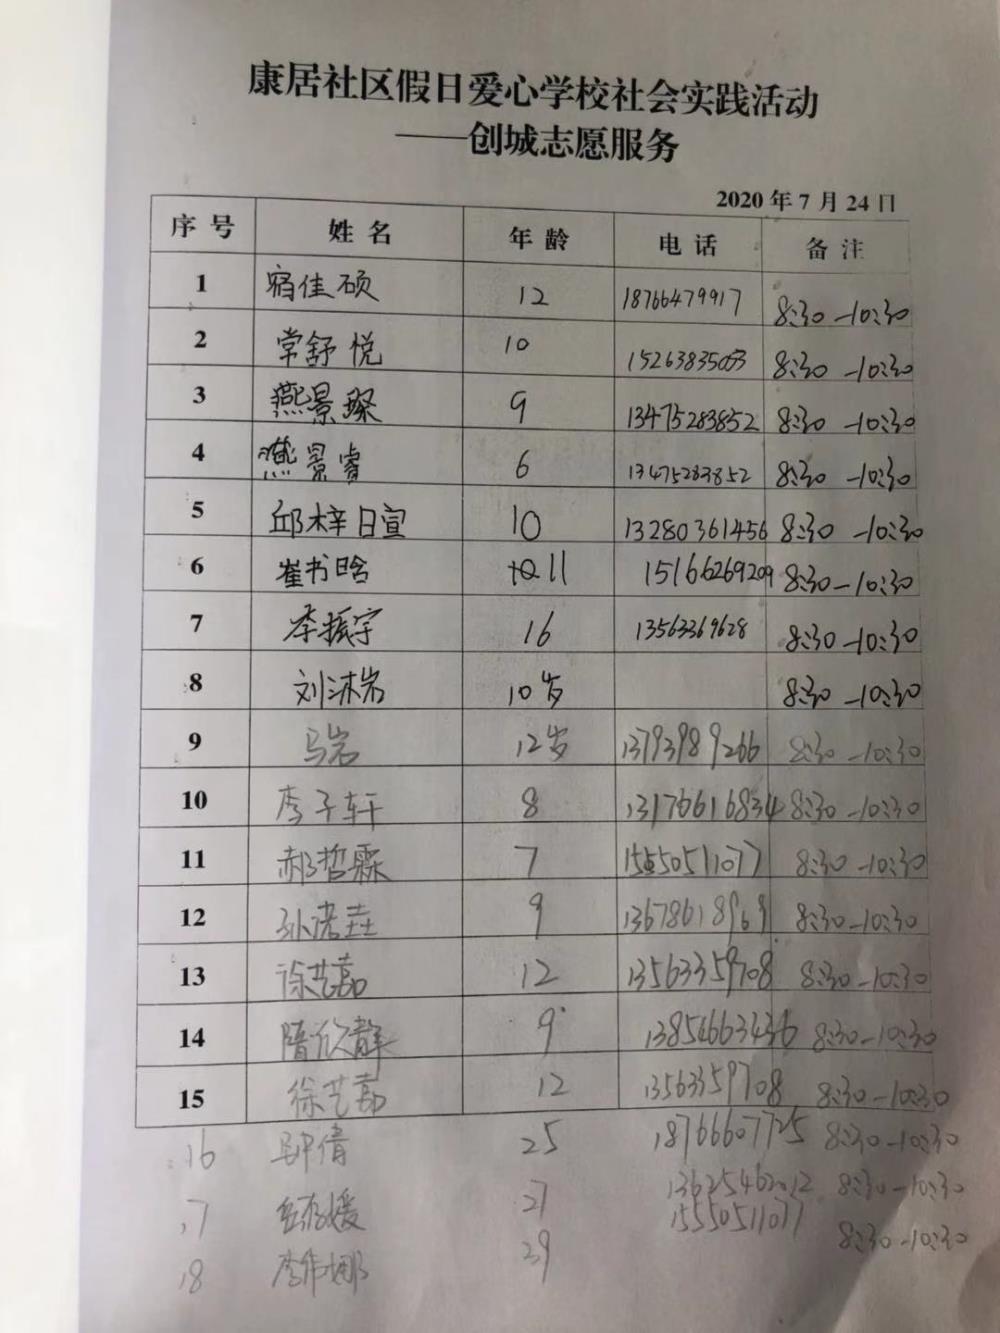 康居社区假日爱心学校社会实践活动
——创城志愿服务
2020年7月24日
序号 姓名 年龄 电话 备注
1 宿佳硕 12 18766479917 8:30-10:30
2 常舒悦 10 15263835053 8:30-10:30
3 燕景璨 9 13475283852 8:30-10:30
4 燕景睿 6 13475283852 8:30-10:30
5 邱梓日宣 10 13280361456 8:30-10:30
6 崔书晗 11 15166269209 8:30-10:30
7 李振宇 16 13563369628 8:30-10:30
8 刘沐岩 10岁 8:30-10:30
9 马岩 12岁 13793989266 8:30-10:30
10 李子轩 8 13176616834 8:30-10:30
11 郝哲霖 7 15550511077 8:30-10:30
12 孙诺垚 9 13678618969 8:30-10:30
13 徐艺嘉 12 13563359708 8:30-10:30
14 隋欣静 9 13854663436 8:30-10:30
15 徐艺嘉 12 13563359708 8:30-10:30
16 倩 25 18766607725 8:30-10:30
17 媛 27 13625462012 8:30-10:30
18 李 娜 29 15550511077 8:30-10:30